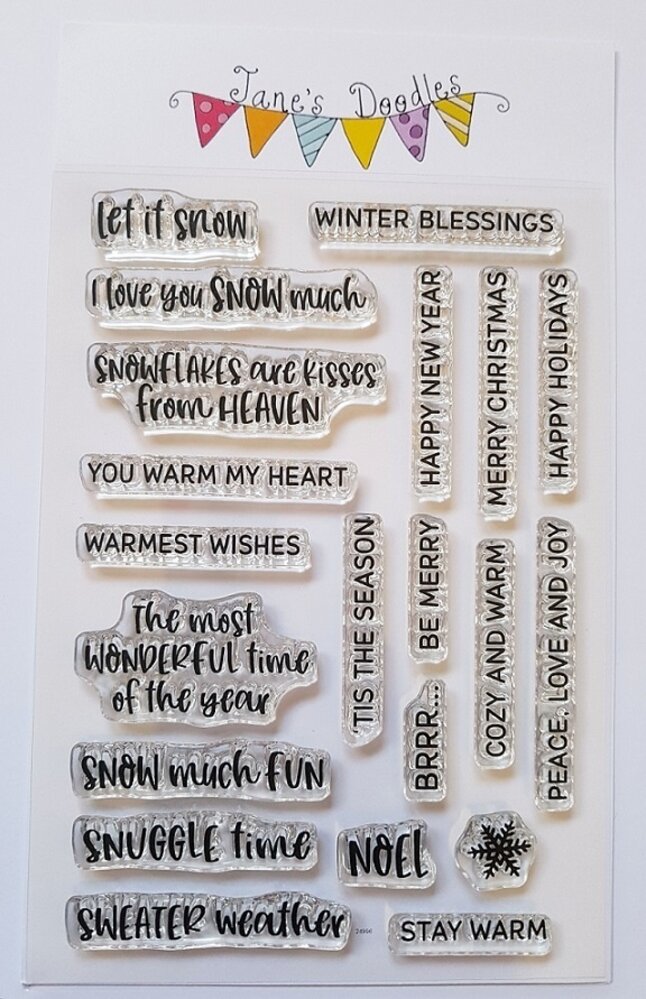 Jane's Doodles
let it snow
WINTER BLESSINGS
I love you SNOW much
SNOWFLAKES are kisses
from HEAVEN
HAPPY NEW YEAR
MERRY CHRISTMAS
HAPPY HOLIDAYS
YOU WARM MY HEART
WARMEST WISHES
The most
WONDERFUL time
of the year
'TIS THE SEASON
BE MERRY
COZY AND WARM
PEACE, LOVE AND JOY
BRRR...
SNOW much FUN
SNUGGLE time
NOEL
SWEATER weather
STAY WARM